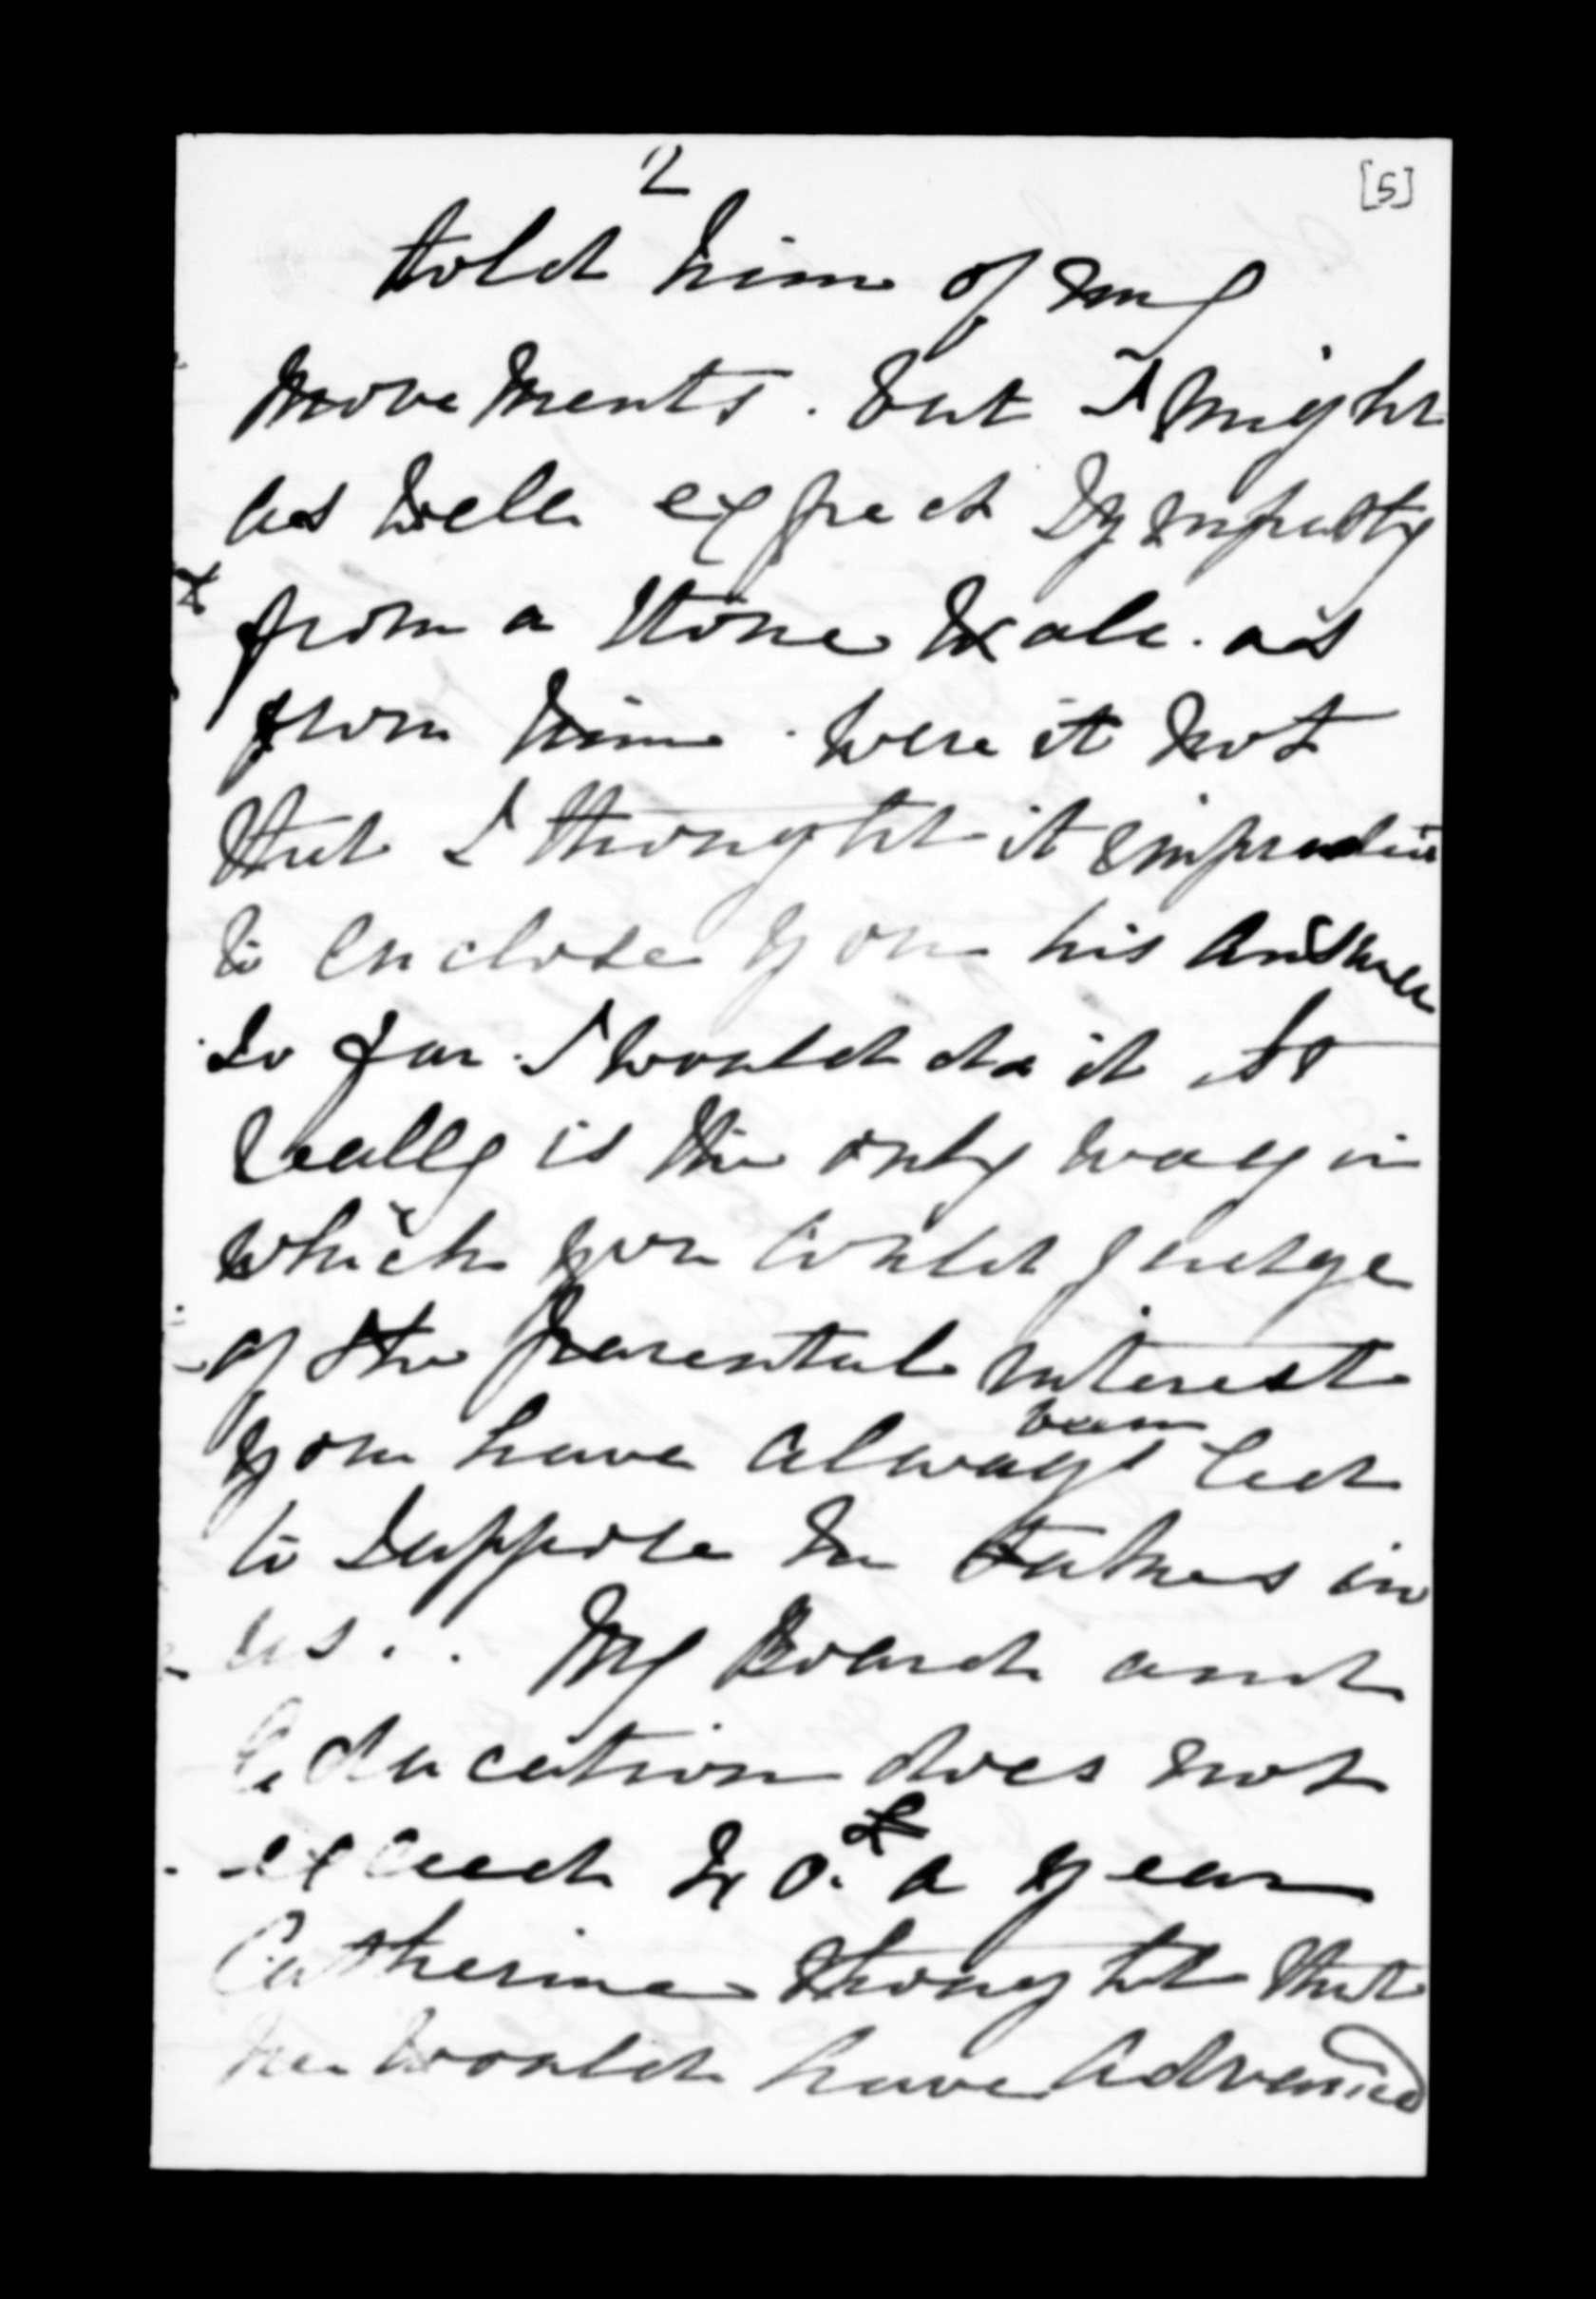 2
[5]
told him of my
movements. but I might
as well expect sympathy
from a stone wall. as
from him. were it not
that I thought it imprudent
to enclose you his answer
so far. I would do it it
really is the only way in
which you could judge
of the parental interest
been
you have always led
to suppose he takes in
us..   My Board and
Education does not
exceed 40.£ a year
Catherine thought that
he would have advanced